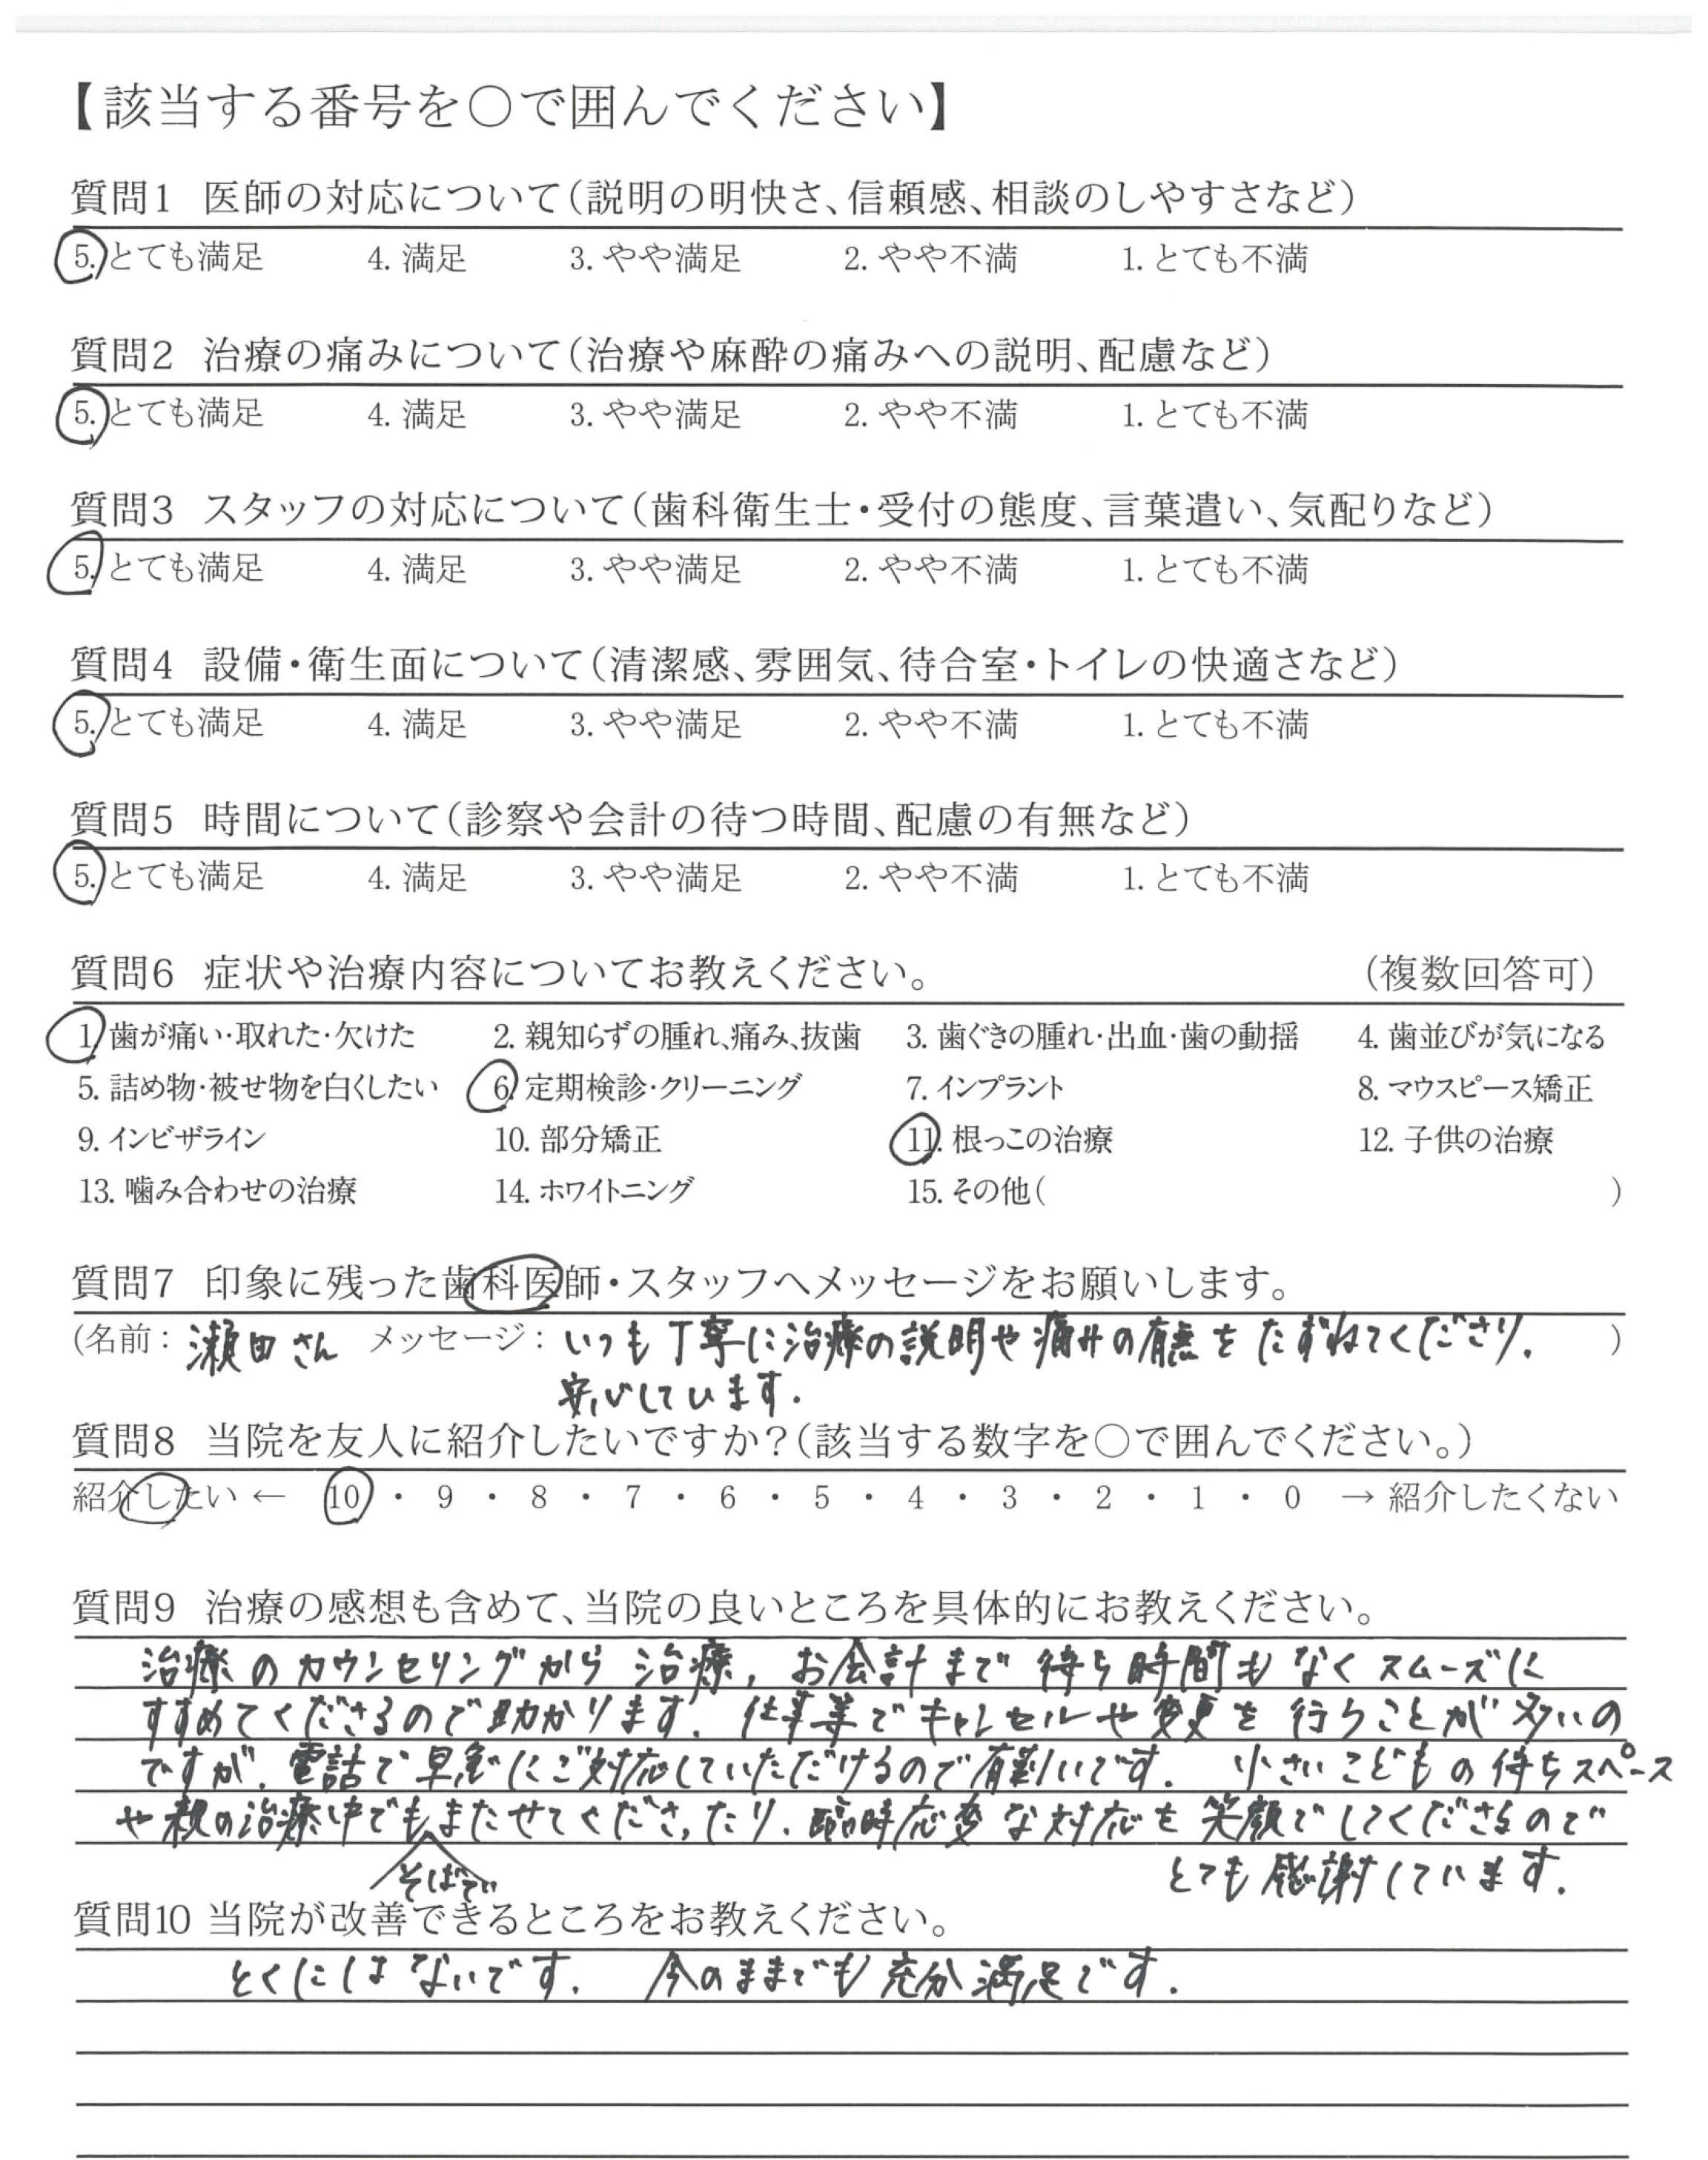 【該当する番号を○で囲んでください】
質問1 医師の対応について(説明の明快さ、信頼感、相談のしやすさなど)
5. とても満足 4. 満足 3. やや満足 2. やや不満 1. とても不満
質問2 治療の痛みについて(治療や麻酔の痛みへの説明、配慮など)
5. とても満足 4. 満足 3. やや満足 2. やや不満 1. とても不満
質問3 スタッフの対応について(歯科衛生士・受付の態度、言葉遣い、気配りなど)
5. とても満足 4. 満足 3. やや満足 2. やや不満 1. とても不満
質問4 設備・衛生面について(清潔感、雰囲気、待合室・トイレの快適さなど)
5. とても満足 4. 満足 3. やや満足 2. やや不満 1. とても不満
質問5 時間について(診察や会計の待つ時間、配慮の有無など)
5. とても満足 4. 満足 3. やや満足 2. やや不満 1. とても不満
質問6 症状や治療内容についてお教えください。 (複数回答可)
1. 歯が痛い・取れた・欠けた 2. 親知らずの腫れ、痛み、抜歯 3. 歯ぐきの腫れ・出血・歯の動揺 4. 歯並びが気になる
5. 詰め物・被せ物を白くしたい 6. 定期検診・クリーニング 7. インプラント 8. マウスピース矯正
9. インビザライン 10. 部分矯正 11. 根っこの治療 12. 子供の治療
13. 噛み合わせの治療 14. ホワイトニング 15. その他( )
質問7 印象に残った歯科医師・スタッフへメッセージをお願いします。
(名前: 瀬田さん メッセージ: いつも丁寧に治療の説明や痛みの有無をたずねてくださり、 )
安心しています。
質問8 当院を友人に紹介したいですか?(該当する数字を○で囲んでください。)
紹介したい ← 10 ・ 9 ・ 8 ・ 7 ・ 6 ・ 5 ・ 4 ・ 3 ・ 2 ・ 1 ・ 0 → 紹介したくない
質問9 治療の感想も含めて、当院の良いところを具体的にお教えください。
治療のカウンセリングから治療、お会計まで待ち時間もなくスムーズに
すすめてくださるので助かります。仕事等でキャンセルや変更を行うことが多いの
ですが、電話で早急にご対応していただけるので有難いです。小さいこどもの待ちスペース
や親の治療中でもまたせてくださったり、臨時応変な対応を笑顔でしてくださるので
そばで
とても感謝しています。
質問10 当院が改善できるところをお教えください。
とくにはないです。 今のままでも充分満足です。